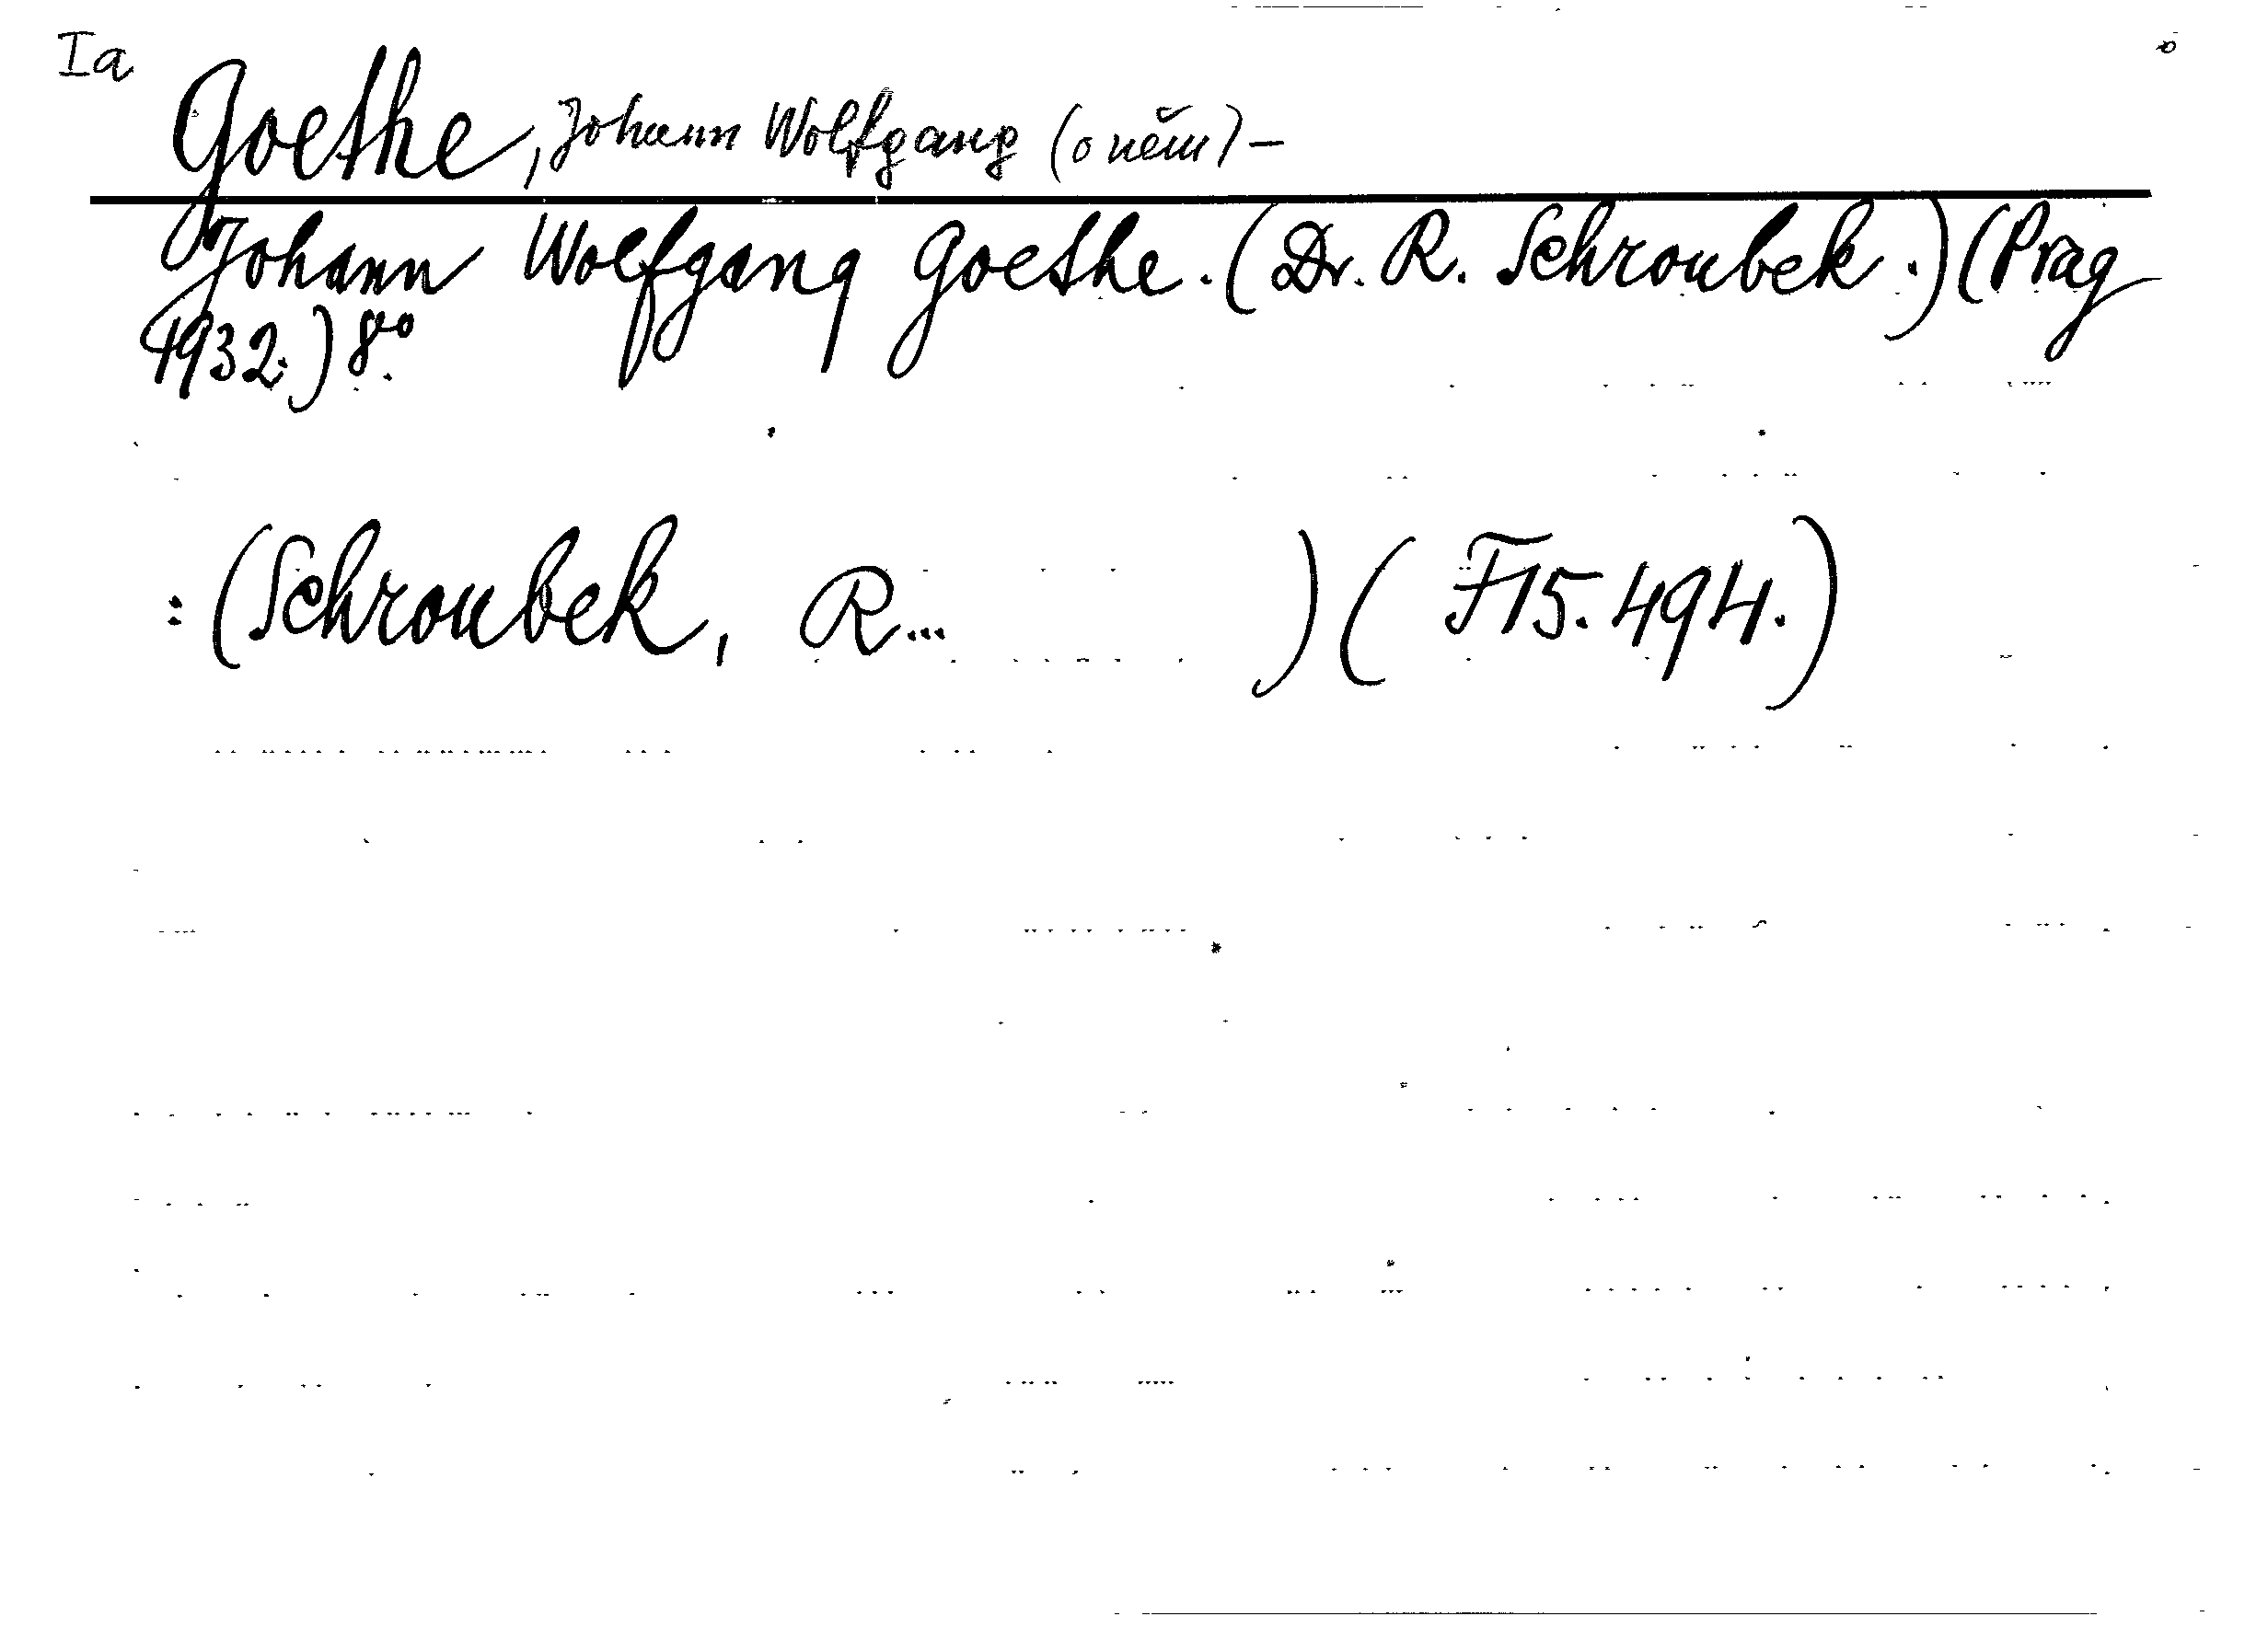 Ia
Goethe, Johann Wolfgang (o něm) –
Johann Wolfgang Goethe. (Dr. R. Schroubek.) (Prag
1932.) 8º.
: (Schroubek, R... ) ( F 15.494.)